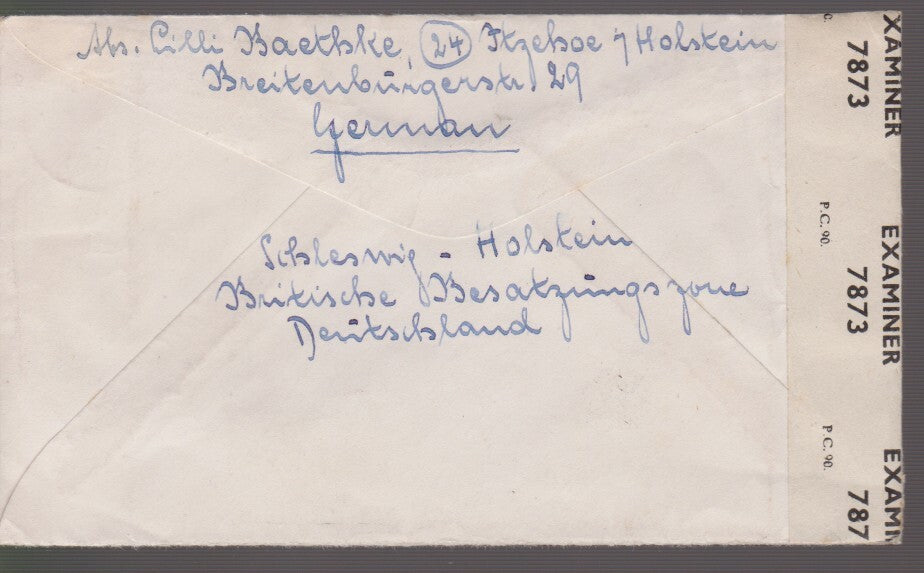 Abs. Cilli Baethke, 24 Itzehoe / Holstein
Breitenburgerstr. 29
German
Schleswig - Holstein
Britische Besatzungszone
Deutschland
C.
XAMINER
7873
P.C. 90.
EXAMINER
7873
P.C. 90.
EXAMIN
787